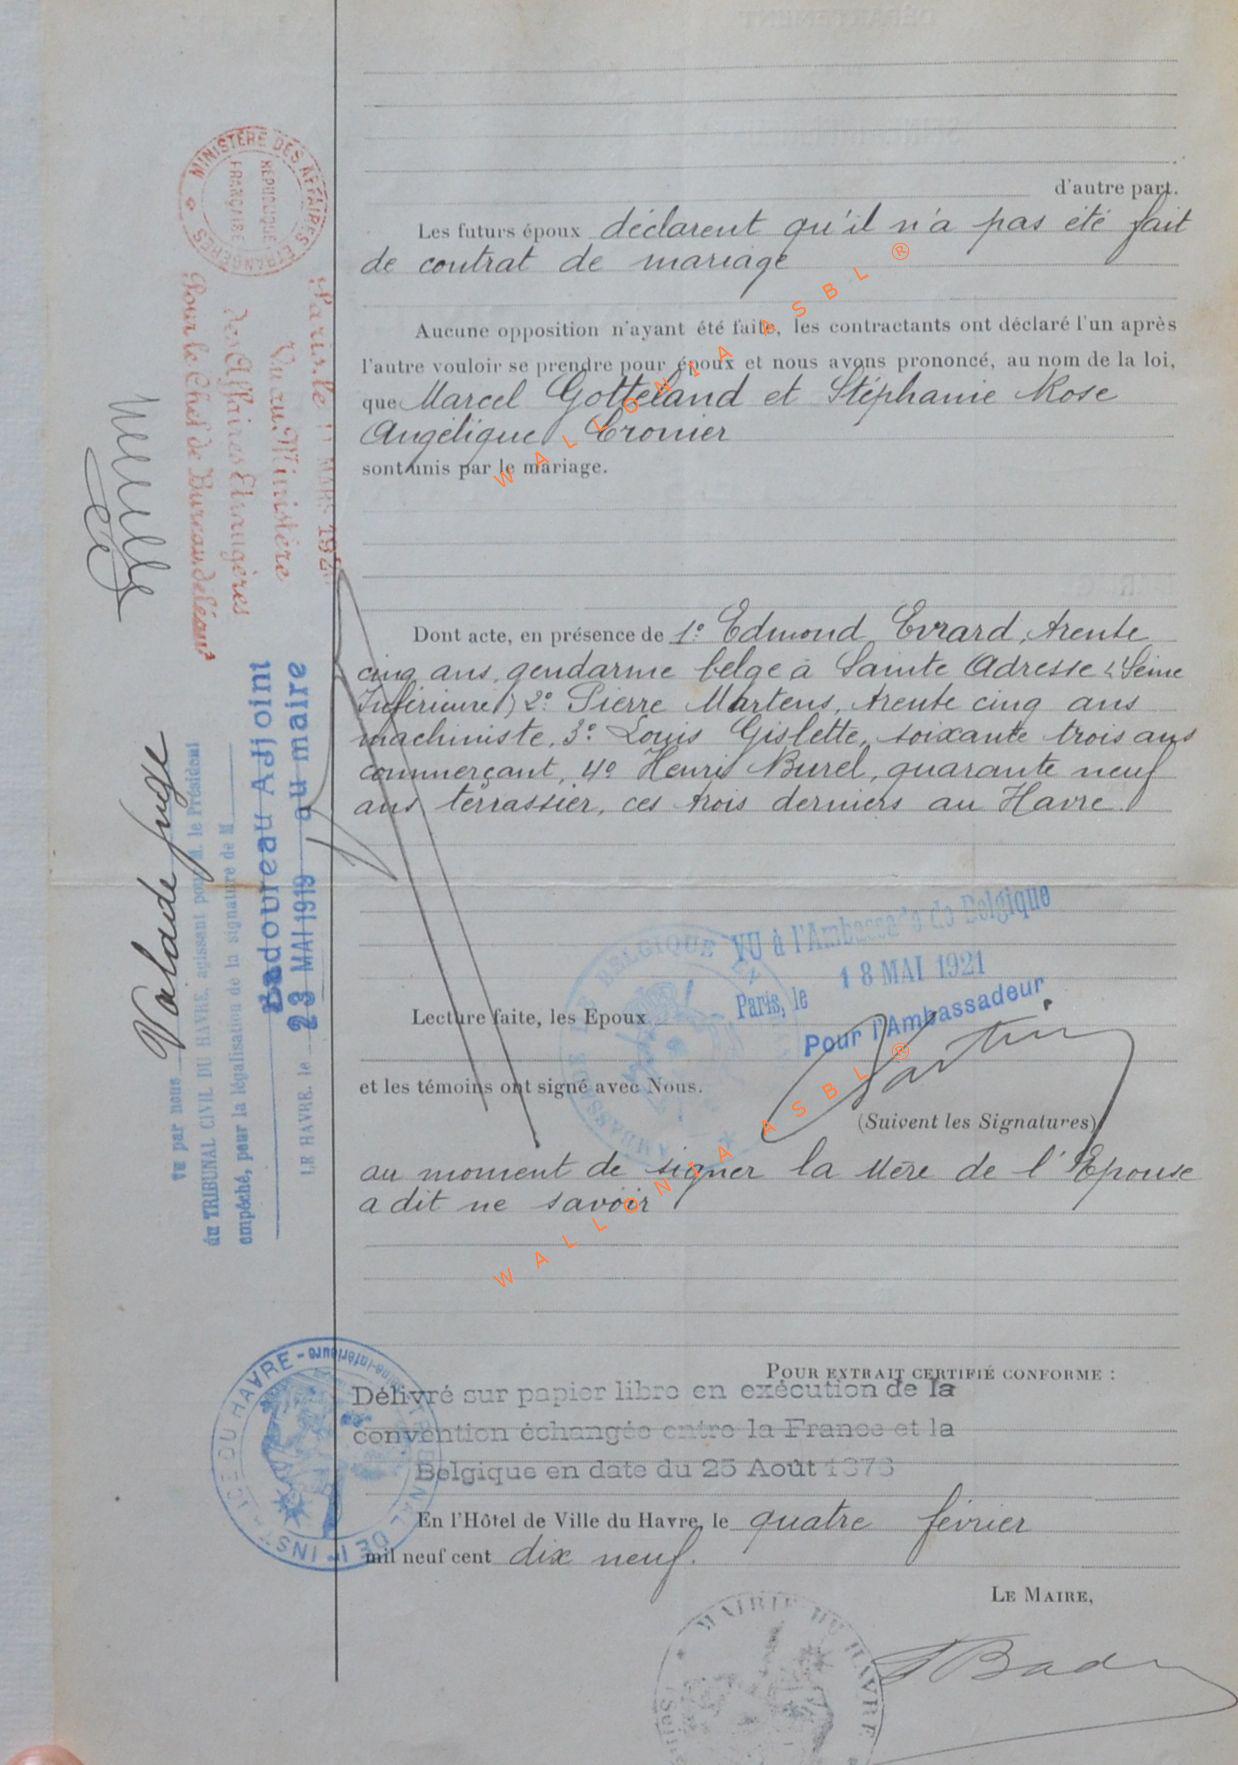 d'autre part.
Les futurs époux déclarent qu'il n'a pas été fait
de contrat de mariage
Aucune opposition n'ayant été faite, les contractants ont déclaré l'un après
l'autre vouloir se prendre pour époux et nous avons prononcé, au nom de la loi,
que Marcel Gotteland et Stéphanie Rose
Angélique Cronier
sont unis par le mariage.
Dont acte, en présence de 1º Edmond Evrard, trente
cinq ans, gendarme belge à Sainte Adresse (Seine
Inférieure) 2º Pierre Martens, trente cinq ans
machiniste, 3º Louis Gislette, soixante trois ans
commerçant, 4º Henri Burel, quarante neuf
ans terrassier, ces trois derniers au Havre
VU à l'Ambassade de Belgique
Paris, le 18 MAI 1921
Pour l'Ambassadeur
Lecture faite, les Epoux
et les témoins ont signé avec Nous.
(Suivent les Signatures)
au moment de signer la Mère de l'Epouse
a dit ne savoir
POUR EXTRAIT CERTIFIÉ CONFORME :
Délivré sur papier libre en exécution de la
convention échangée entre la France et la
Belgique en date du 25 Août 1876
En l'Hôtel de Ville du Havre, le quatre février
mil neuf cent dix neuf.
LE MAIRE,
MAIRIE DU HAVRE
MINISTÈRE DES AFFAIRES ETRANGÈRES
RÉPUBLIQUE
FRANÇAISE
Paris, le MARS 192
Vu au Ministère
des Affaires Etrangères
Pour le Chef de Bureau délégué
Vu par nous Valade juge
du TRIBUNAL CIVIL DU HAVRE, agissant pour M. le Président
empêché, pour la légalisation de la signature de M
Badoureau Adjoint
au maire
LE HAVRE, le 23 MAI 1919
AMBASSADE DE BELGIQUE EN
TRIBUNAL DE 1re INSTANCE DU HAVRE
WALLONIA ASBL ®
WALLONIA ASBL ®